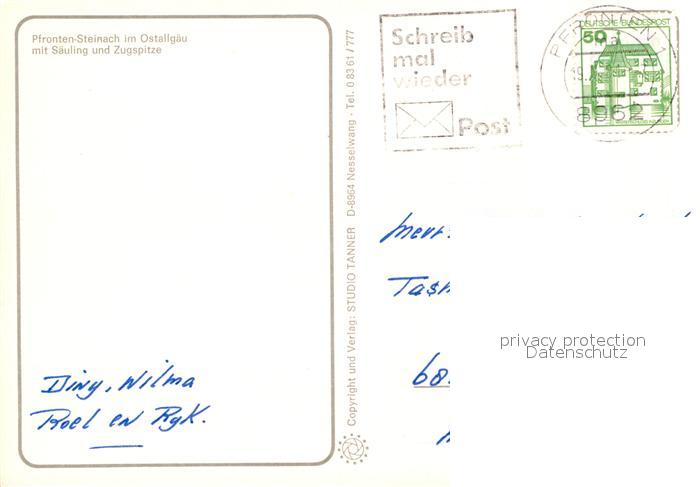 Pfronten-Steinach im Ostallgäu
mit Säuling und Zugspitze
Schreib
mal
wieder
Post
PFRONTEN 1
8962
DEUTSCHE BUNDESPOST
50
Copyright und Verlag: STUDIO TANNER D-8964 Nesselwang - Tel. 0 83 61 / 777
Diny, Wilma
Roel en Ryk.
privacy protection
Datenschutz